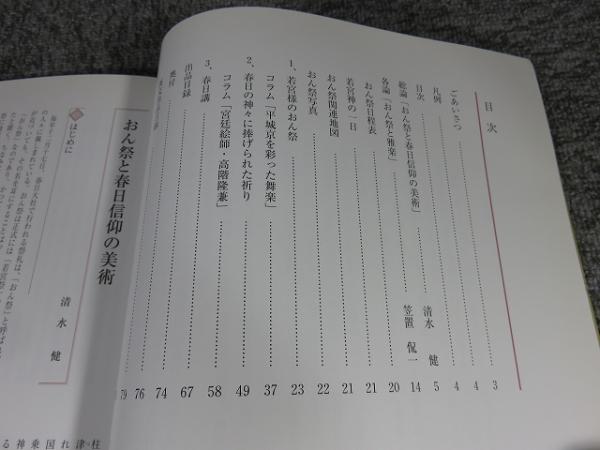 目次
ごあいさつ 3
凡例 4
目次 4
総論「おん祭と春日信仰の美術」 清水 健 5
各論「おん祭と雅楽」 笠置 侃一 14
おん祭日程表 20
若宮神の一日 21
おん祭関連地図 21
おん祭写真 22
1、若宮様のおん祭 23
コラム「平城京を彩った舞楽」 37
2、春日の神々に捧げられた祈り 49
コラム「宮廷絵師・高階隆兼」 58
3、春日講 67
出品目録 74
奥付 76
79
おん祭と春日信仰の美術
清水 健
はじめに